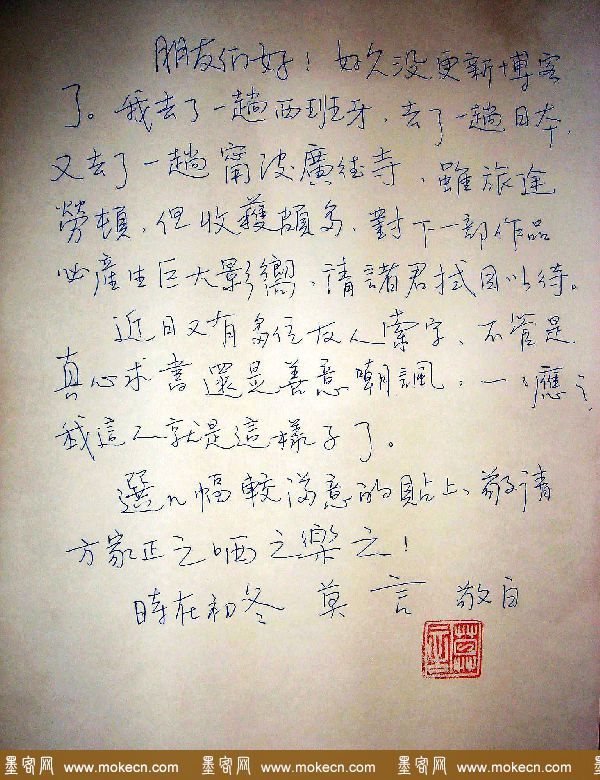 朋友们好！好久没更新博客
了。我去了一趟西班牙，去了一趟日本，
又去了一趟甯波廣德寺，雖旅途
勞頓，但收獲頗多，對下一部作品
必產生巨大影嚮，请諸君拭目以待。
近日又有多位友人索字，不管是
真心求書還是善意嘲諷，一一應之
我這人就是這樣子了。
選几幅較滿意的貼上，敬请
方家正之哂之樂之！
時在初冬 莫言 敬白
墨客网 www.mokecn.com 墨客网 www.mokecn.com 墨客网 www.mokecn.com